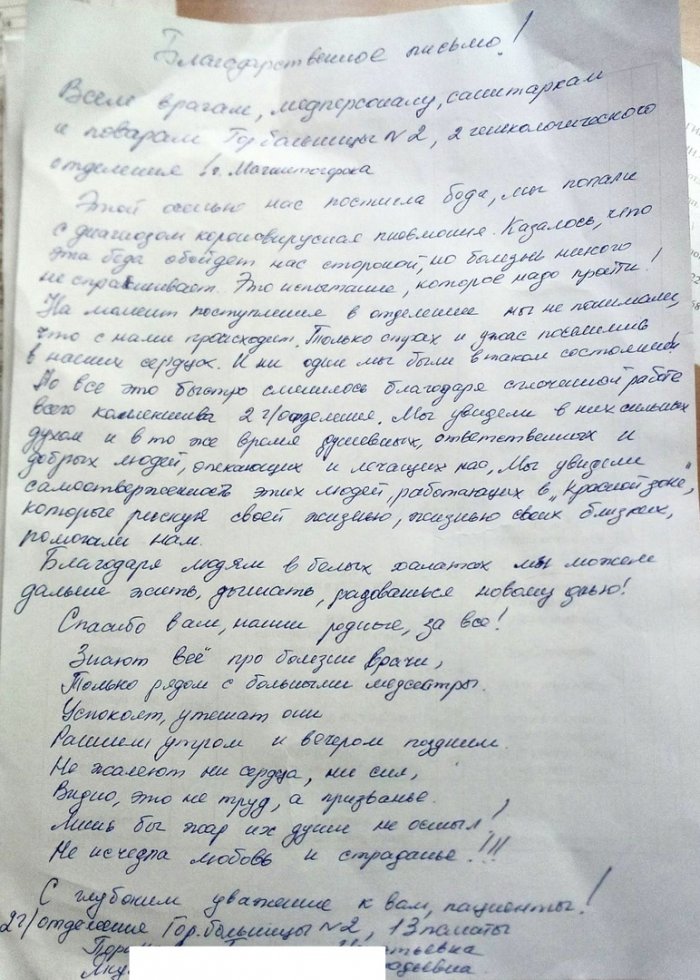 Благодарственное письмо!
Всем врачам, медперсоналу, санитаркам
и поварам Гор.больницы N2, 2 гинекологического
отделения г. Магнитогорска
Этой осенью нас постигла беда, мы попали
с диагнозом короновирусная пневмония. Казалось, что
эта беда обойдет нас стороной, но болезнь никого
не спрашивает. Это испытание, которое надо пройти!
На момент поступления в отделение мы не понимали,
что с нами происходит. Только страх и ужас поселились
в наших сердцах. И ни одни мы были в таком состоянии!
Но все это быстро сменилось благодаря сплоченной работе
всего коллектива 2 г/отделения. Мы увидели в них сильных
духом и в то же время душевных, ответственных и
добрых людей, опекающих и лечащих нас. Мы увидели
самоотверженность этих людей, работающих в "Красной зоне",
которые рискуя своей жизнью, жизнью своих близких,
помогали нам.
Благодаря людям в белых халатах мы можем
дальше жить, дышать, радоваться новому дню!
Спасибо вам, наши родные, за все!
Знают всё про болезни врачи,
Только рядом с больными медсестры.
Успокоят, утешат они
Ранним утром и вечером поздним.
Не жалеют ни сердца, ни сил,
Видно, это не труд, а призванье.
Лишь бы жар их души не остыл!
Не исчезла любовь и страданье!!!
С глубоким уважение к вам, пациенты!
2 г/отделения Гор.больницы N2, 13 палаты